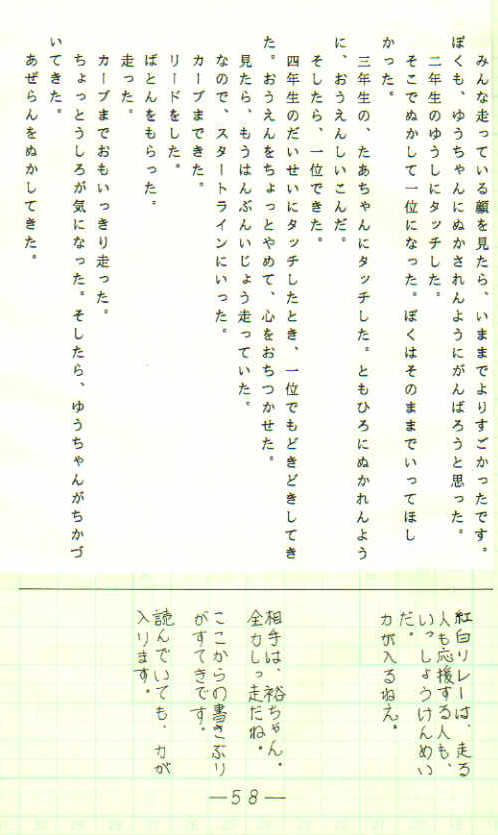 みんな走っている顔を見たら、いままでよりすごかったです。
ぼくも、ゆうちゃんにぬかされんようにがんばろうと思った。
二年生のゆうしにタッチした。
そこでぬかして一位になった。ぼくはそのままでいってほし
かった。
三年生の、たあちゃんにタッチした。ともひろにぬかれんよう
に、おうえんしいこんだ。
そしたら、一位できた。
四年生のだいせいにタッチしたとき、一位でもどきどきしてき
た。おうえんをちょっとやめて、心をおちつかせた。
見たら、もうはんぶんいじょう走っていた。
なので、スタートラインにいった。
カーブまできた。
リードをした。
ばとんをもらった。
走った。
カーブまでおもいっきり走った。
ちょっとうしろが気になった。そしたら、ゆうちゃんがちかづ
いてきた。
あぜらんをぬかしてきた。
紅白リレーは、走る
人も応援する人も、
いっしょうけんめい
だ。
力が入るねえ。
相手は、裕ちゃん。
全力しっ走だね。
ここからの書きぶり
がすてきです。
読んでいても、力が
入ります。
—58—